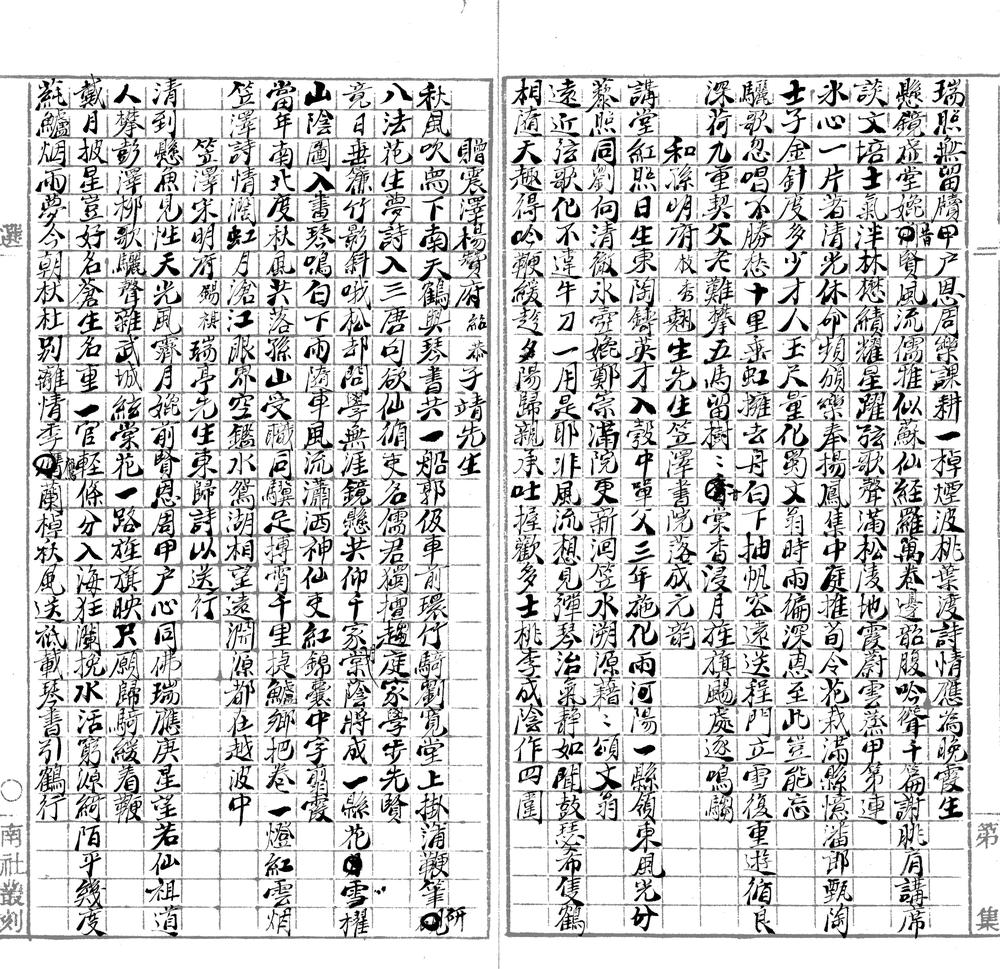 第 集
瑞照無留牘甲户恩周樂課耕一棹煙波桃葉渡詩情應為晚霞生
懸鏡虛堂媲昔賢風流儒雅似蘇仙經羅萬卷邊韶腹吟聳千篇謝眺肩講席
談文培士氣泮林懋績耀星躔弦歌聲滿松陵地霞蔚雲蒸甲第連
冰心一片著清光休命頻頒樂奉揚鳳集中庭推荀令花栽滿縣憶潘郎甄陶
士子金針度多少才人玉尺量化蜀文翁時雨偏深恵至此豈能忘
驪歌忽唱不勝愁十里垂虹擁去舟白下抽帆容遠送程門立雪復重遊循良
深荷九重契父老難攀五馬留樹樹甘棠香浸月旌旗颺處逐鳴騶
和孫明府枝秀翹生先生笠澤書院落成元韵
講堂紅照日生東陶鑄英才入彀中單父三年施化雨河陽一縣領東風光分
藜照同劉向清徽冰壺媲鄭崇滿院更新洄笠水溯源藉藉頌文翁
遠近弦歌化不違牛刀一用是耶非風流想見彈琴治氣靜如聞鼓瑟希隻鶴
相隨天趣得吟鞭緩趁夕陽歸親承吐握歡多士桃李成陰作四圍
贈震澤楊贊府紹恭子靖先生
秋風吹雋下南天鶴與琴書共一船郭伋車前環竹騎劉寬堂上掛蒲鞭筆研
八法花生夢詩入三唐句欲仙循吏名儒君獨擅趨庭家學步先賢
竟日垂簾竹影斜哦松却問學無涯鏡懸共仰千家棠陰將成一縣花雪櫂
山陰圖入畫琴鳴白下雨隨車風流瀟洒神仙吏紅錦囊中字翦霞
當年南北度秋風共落孫山受職同驥足摶霄千里掉鱸鄉把卷一燈紅雲烟
笠澤詩情濶虹月滄江眼界空鑑水鴛湖相望遠淵源都在越波中
笠澤宋明府錫祺瑞亭先生東歸詩以送行
清到懸魚見性天光風霽月媲前賢恩周甲户心同佛瑞應庚星望若仙祖道
人攀彭澤柳歌驪聲雜武城絃棠花一路旌旗映只願歸騎緩着鞭
戴月披星豈好名蒼生名重一官輕條分入海狂瀾挽水活窮源綺陌平幾度
蒓鱸烟雨夢今朝杕杜别離情季鷹蘭棹秋風送祗載琴書引鶴行
選 ○ 南社叢刻